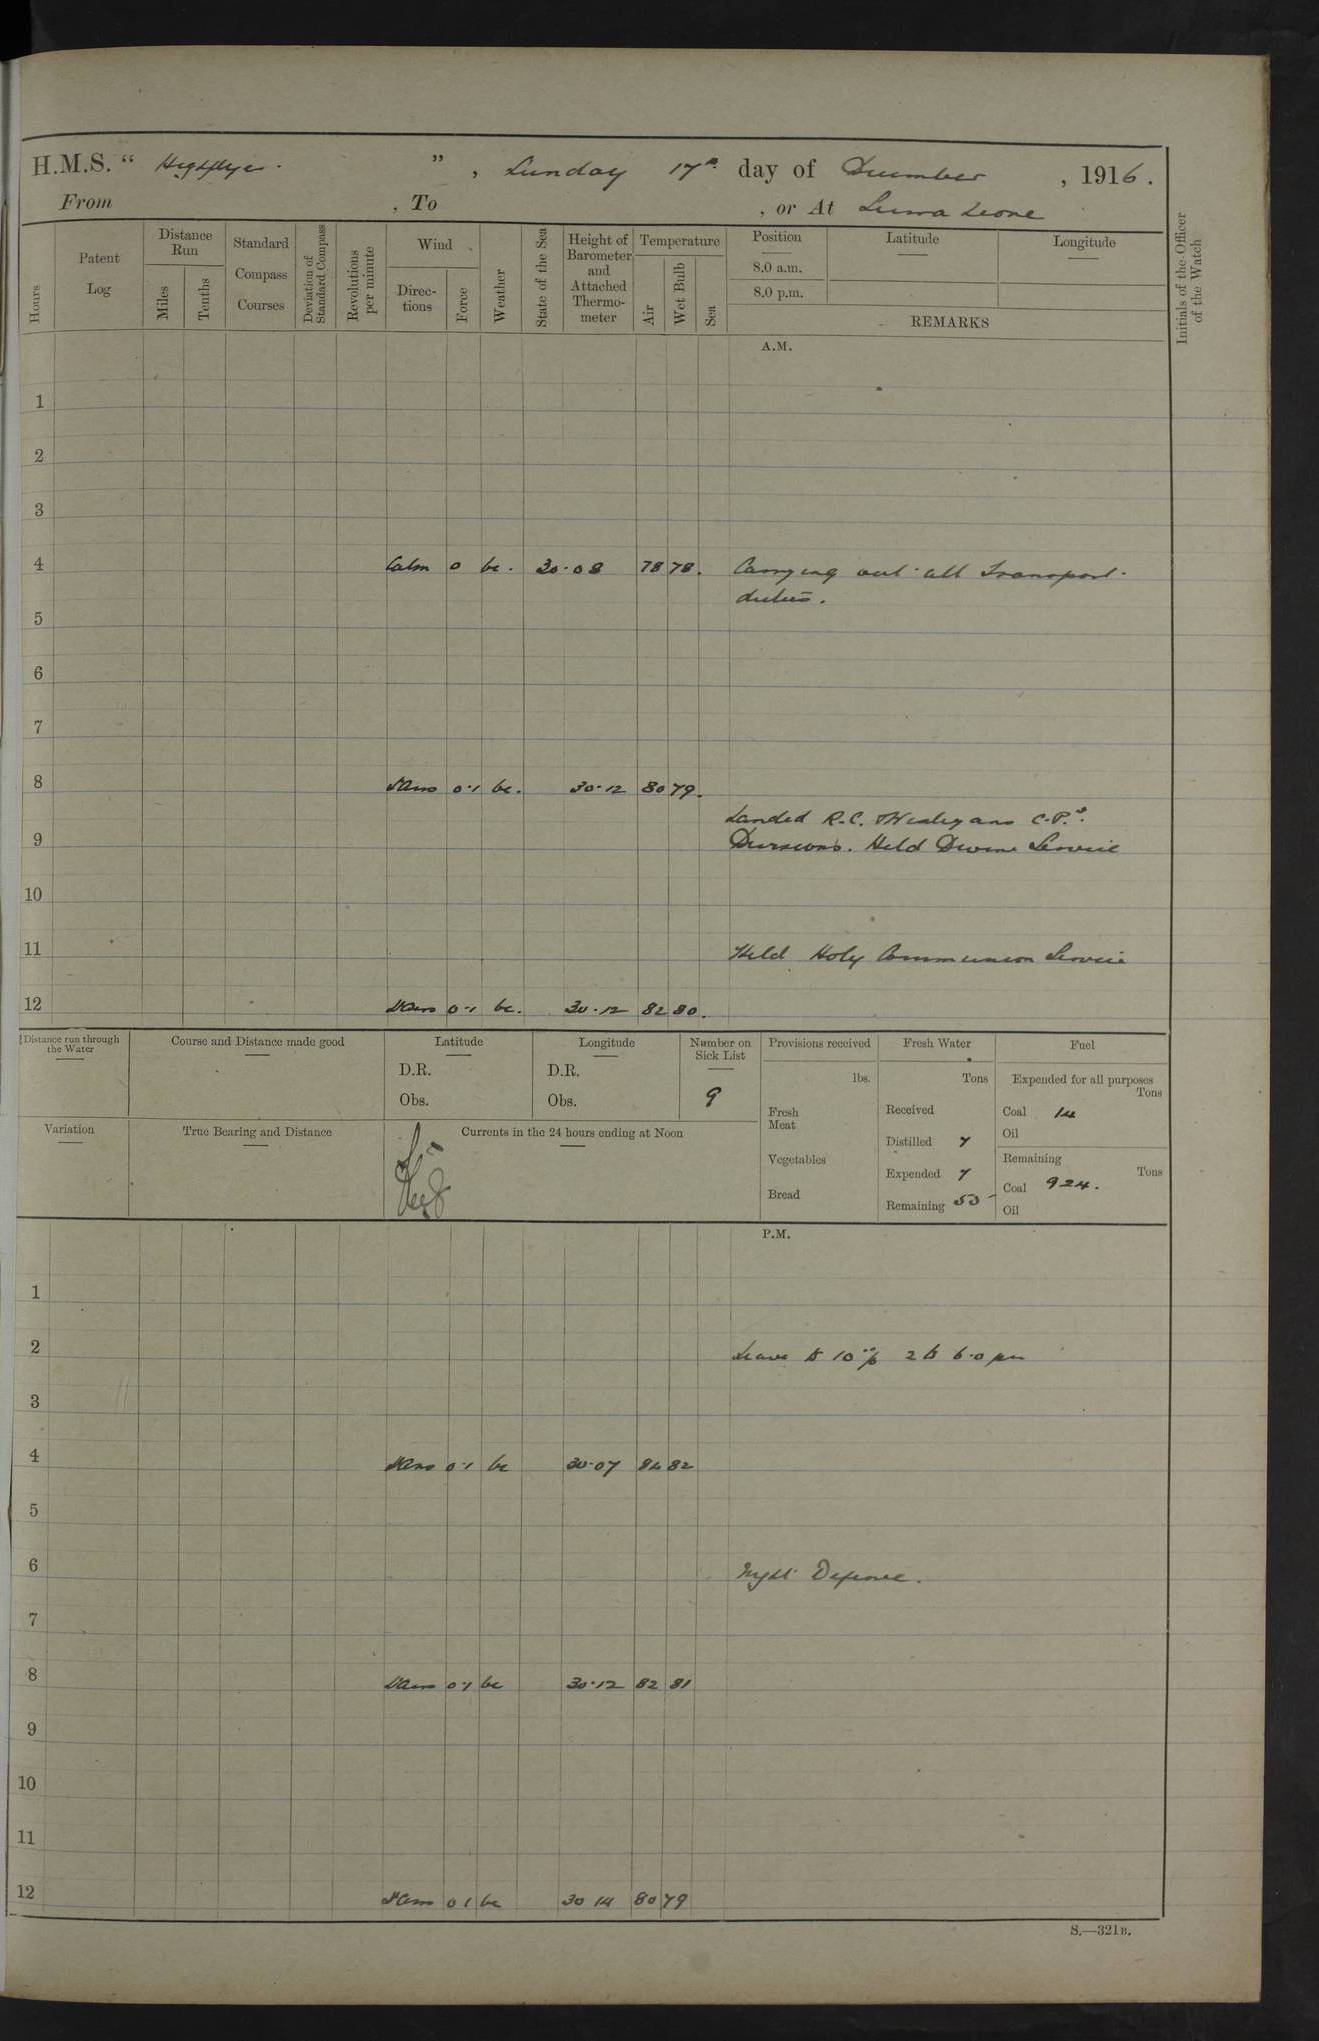 H.M.S. “ Highflyer. ”, Sunday 17th day of December, 1916.
From , To , or At Sierra Leone
Hours
Patent Log
Distance Run
Miles
Tenths
Standard Compass Courses
Deviation of Standard Compass
Revolutions per minute
Wind
Directions
Force
Weather
State of the Sea
Height of Barometer and Attached Thermometer
Temperature
Air
Wet Bulb
Sea
Position
8.0 a.m.
8.0 p.m.
Latitude
Longitude
REMARKS
Initials of the Officer of the Watch
A.M.
1
2
3
4 Calm 0 bc. 30.08 78 78. Carrying out all Transport
duties.
5
6
7
8 0.1 bc. 30.12 80 79.
Landed R.C. Wesleyans C.P.s.
9 Divisions. Held Divine Service
10
11 Held Holy Communion Service
12 0.1 bc. 30.12 82 80.
Distance run through the Water
Course and Distance made good
Latitude
D.R.
Obs.
Longitude
D.R.
Obs.
Number on Sick List
9
Variation
True Bearing and Distance
Currents in the 24 hours ending at Noon
Provisions received
lbs.
Fresh Meat
Vegetables
Bread
Fresh Water
Tons
Received
Distilled 7
Expended 7
Remaining 53
Fuel
Expended for all purposes
Tons
Coal 14
Oil
Remaining
Tons
Coal 924.
Oil
P.M.
1
2 Leave to 2 to 6.0 pm
3
4 0.1 bc 30.07 84 82
5
6 Night Defence.
7
8 0.1 bc 30.12 82 81
9
10
11
12 0 1 bc 30 14 80 79
S.—321B.